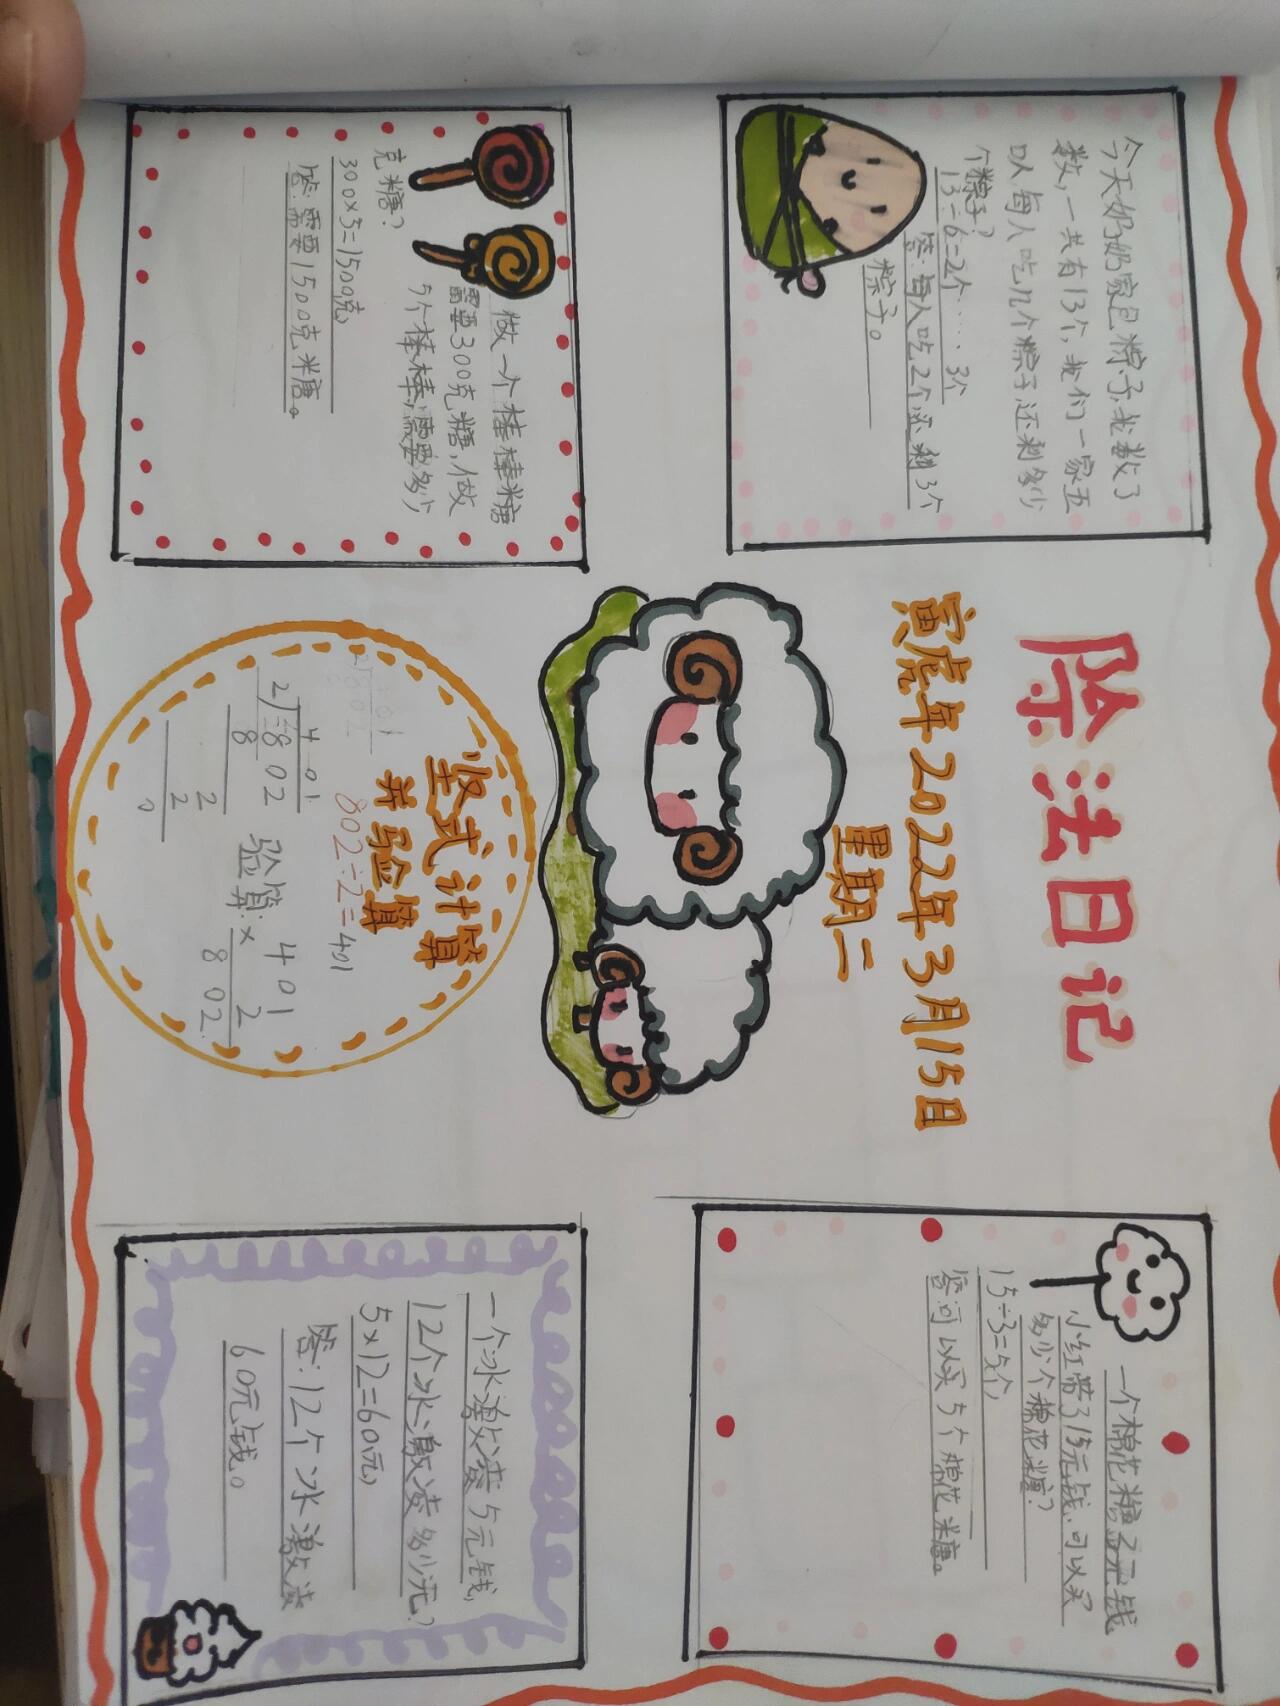 除法日记
寅虎年2022年3月15日
星期二
今天奶奶家包粽子,我数了
数,一共有13个,我们一家五
以每人吃几个粽子,还剩多少
个粽子?
13÷6=2个……3个
答:每人吃2个还剩3个
粽子。
一个棉花糖3元钱
小红带了15元钱,可以买
多少个棉花糖?
15÷3=5个,
答:可以买5个棉花糖。
做一个棒棒糖
需要300克糖,做
5个棒棒,需要多少
克糖?
300×5=1500克,
答:需要1500克糖。
竖式计算
并验算
802÷2=401
401
2 802
8
2
2
0
验算:
401
× 2
802
一个冰激凌5元钱,
12个冰激凌多少元?
5×12=60元,
答:12个冰激凌
60元钱。